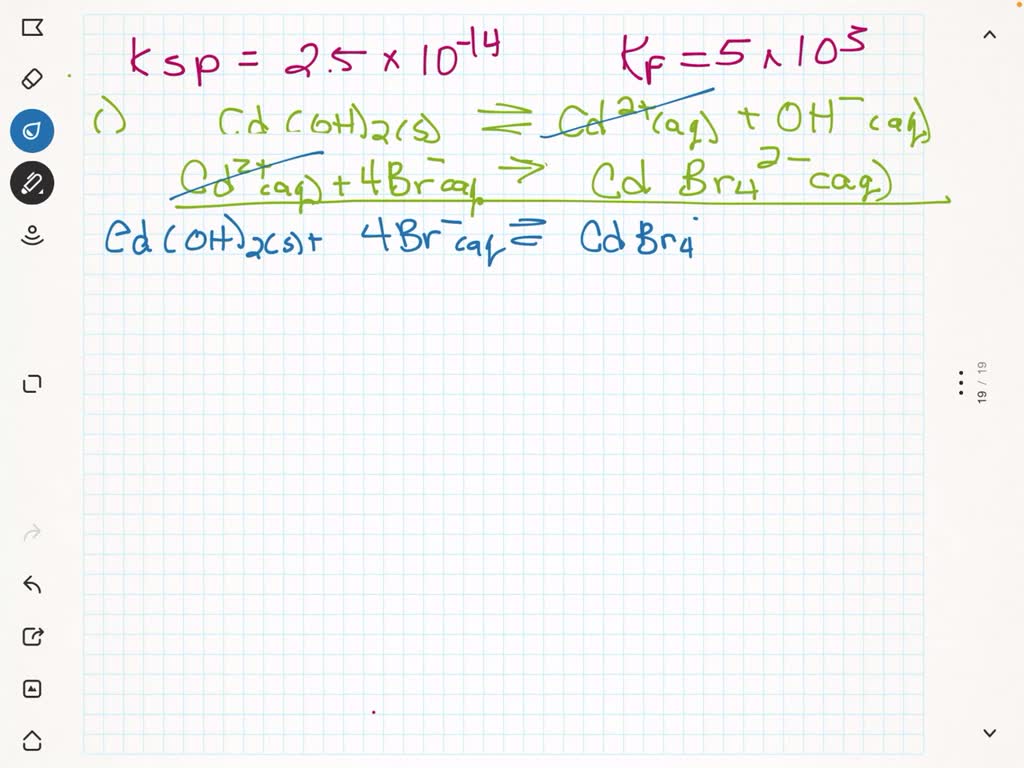 Ksp = 2.5 × 10⁻¹⁴ KF = 5 × 10³
1) Cd(OH)₂(s) ⇌ Cd²⁺(aq) + OH⁻(aq)
Cd²⁺(aq) + 4Br⁻(aq) ⇌ CdBr₄²⁻(aq)
Cd(OH)₂(s) + 4Br⁻(aq) ⇌ CdBr₄
19 / 19